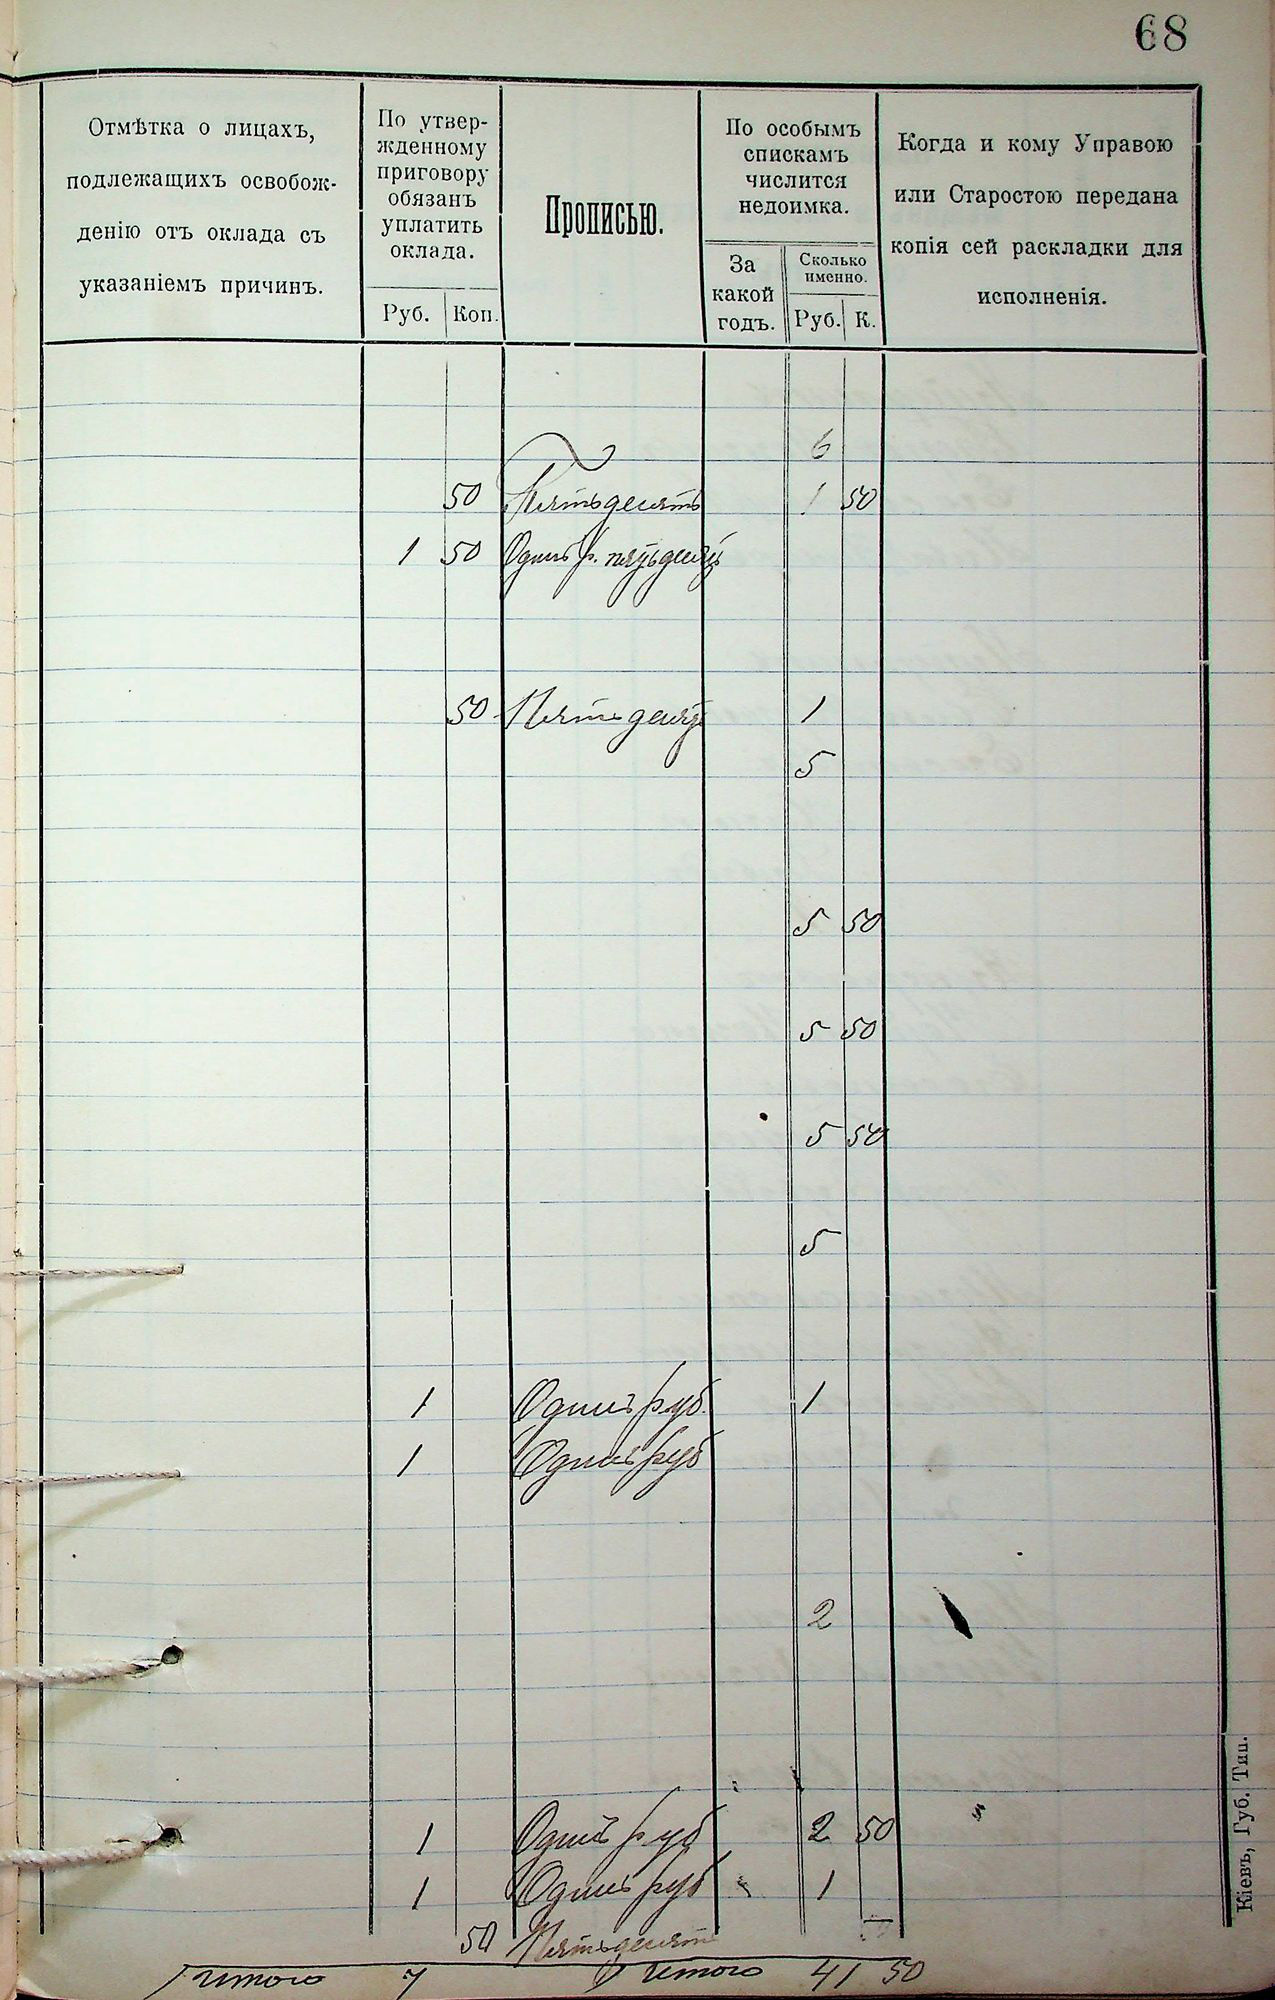 68
Отмѣтка о лицахъ,
подлежащихъ освобож-
денію отъ оклада съ
указаніемъ причинъ.
По утвер-
жденному
приговору
обязанъ
уплатить
оклада.
Руб. Коп.
Прописью.
По особымъ
спискамъ
числится
недоимка.
За
какой
годъ.
Сколько
именно.
Руб. К.
Когда и кому Управою
или Старостою передана
копія сей раскладки для
исполненія.
6
50 Пятьдесятъ 1 50
1 50 Одинъ р. пятьдесятъ
50 Пятьдесятъ 1
5
5 50
5 50
5 50
5
1 Одинъ руб. 1
1 Одинъ руб
2
1 Одинъ руб 2 50
1 Одинъ руб 1
50 Пятьдесятъ
Итого 7 Итого 41 50
Кіевъ, Губ. Тип.